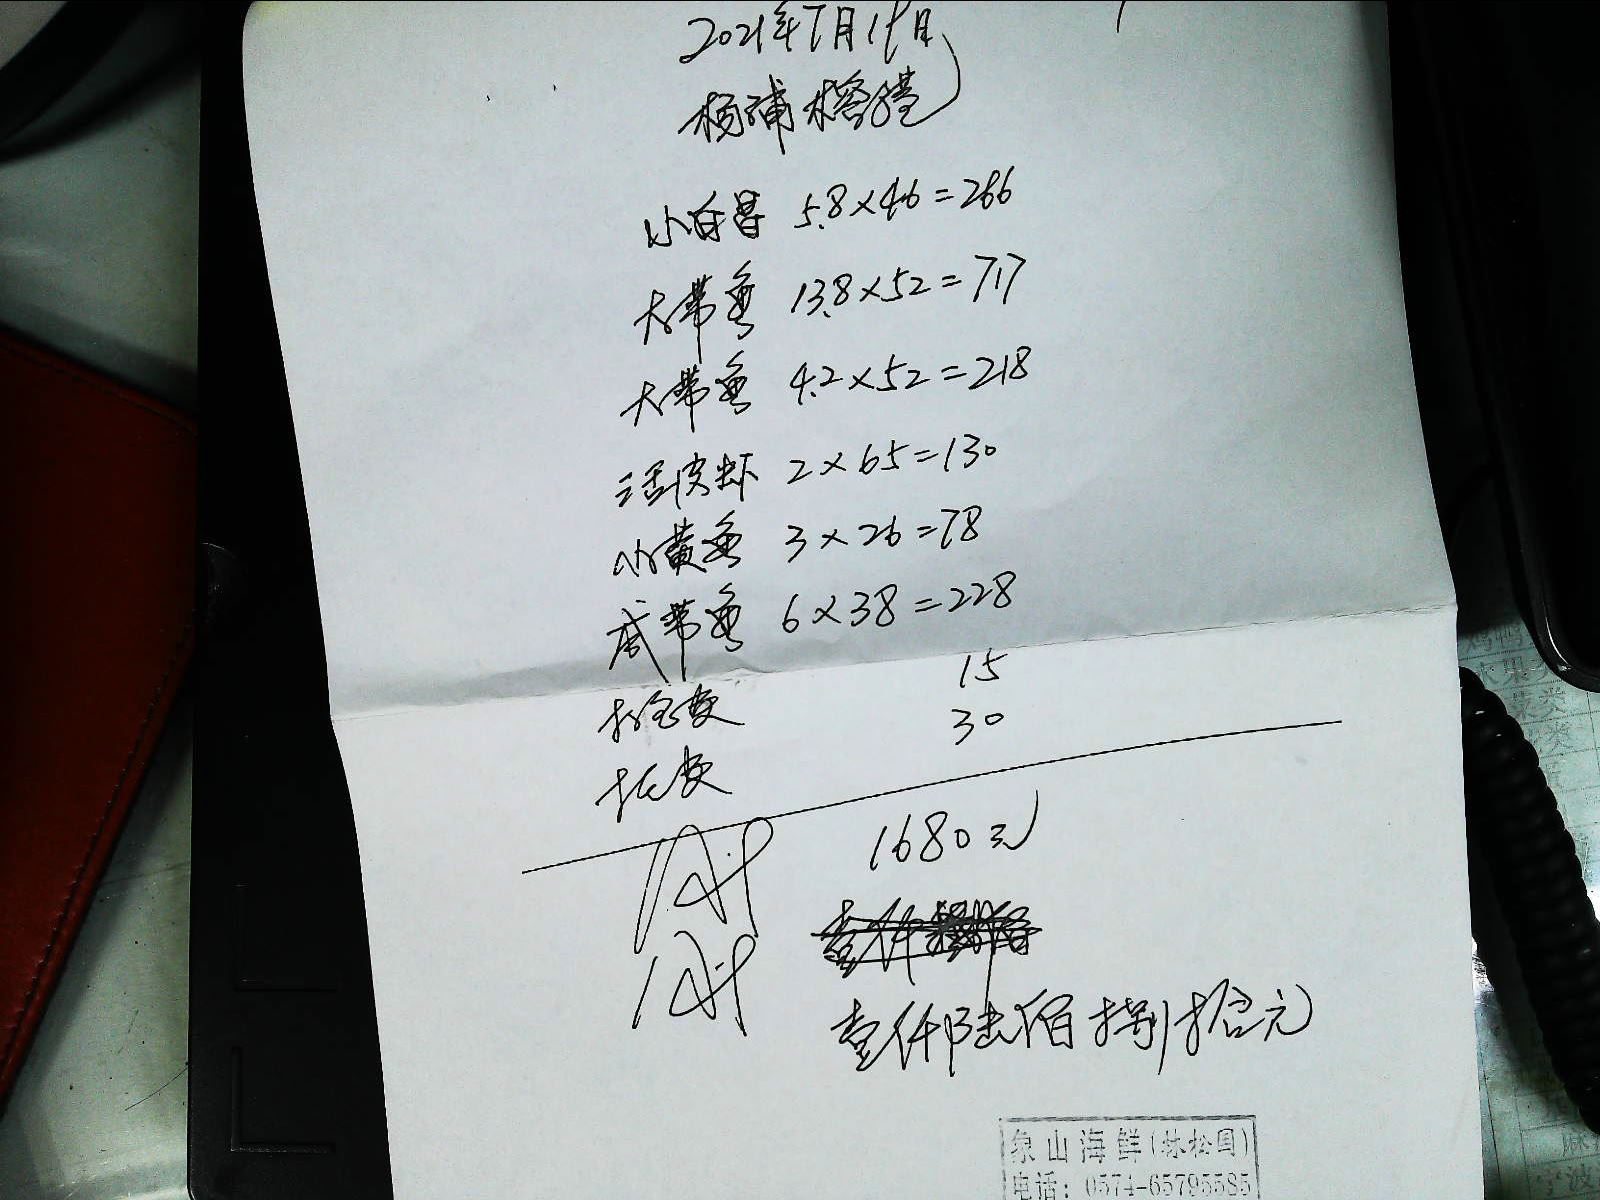 2021年7月19日
杨浦
小白昌 5.8×46=266
大带鱼 13.8×52=717
大带鱼 4.2×52=218
活皮虾 2×65=130
小黄鱼 3×26=78
咸带鱼 6×38=228
打包费 15
托费 30
1680元
壹仟陆佰捌拾元
象山海鲜(林松国)
电话: 0574-65795585